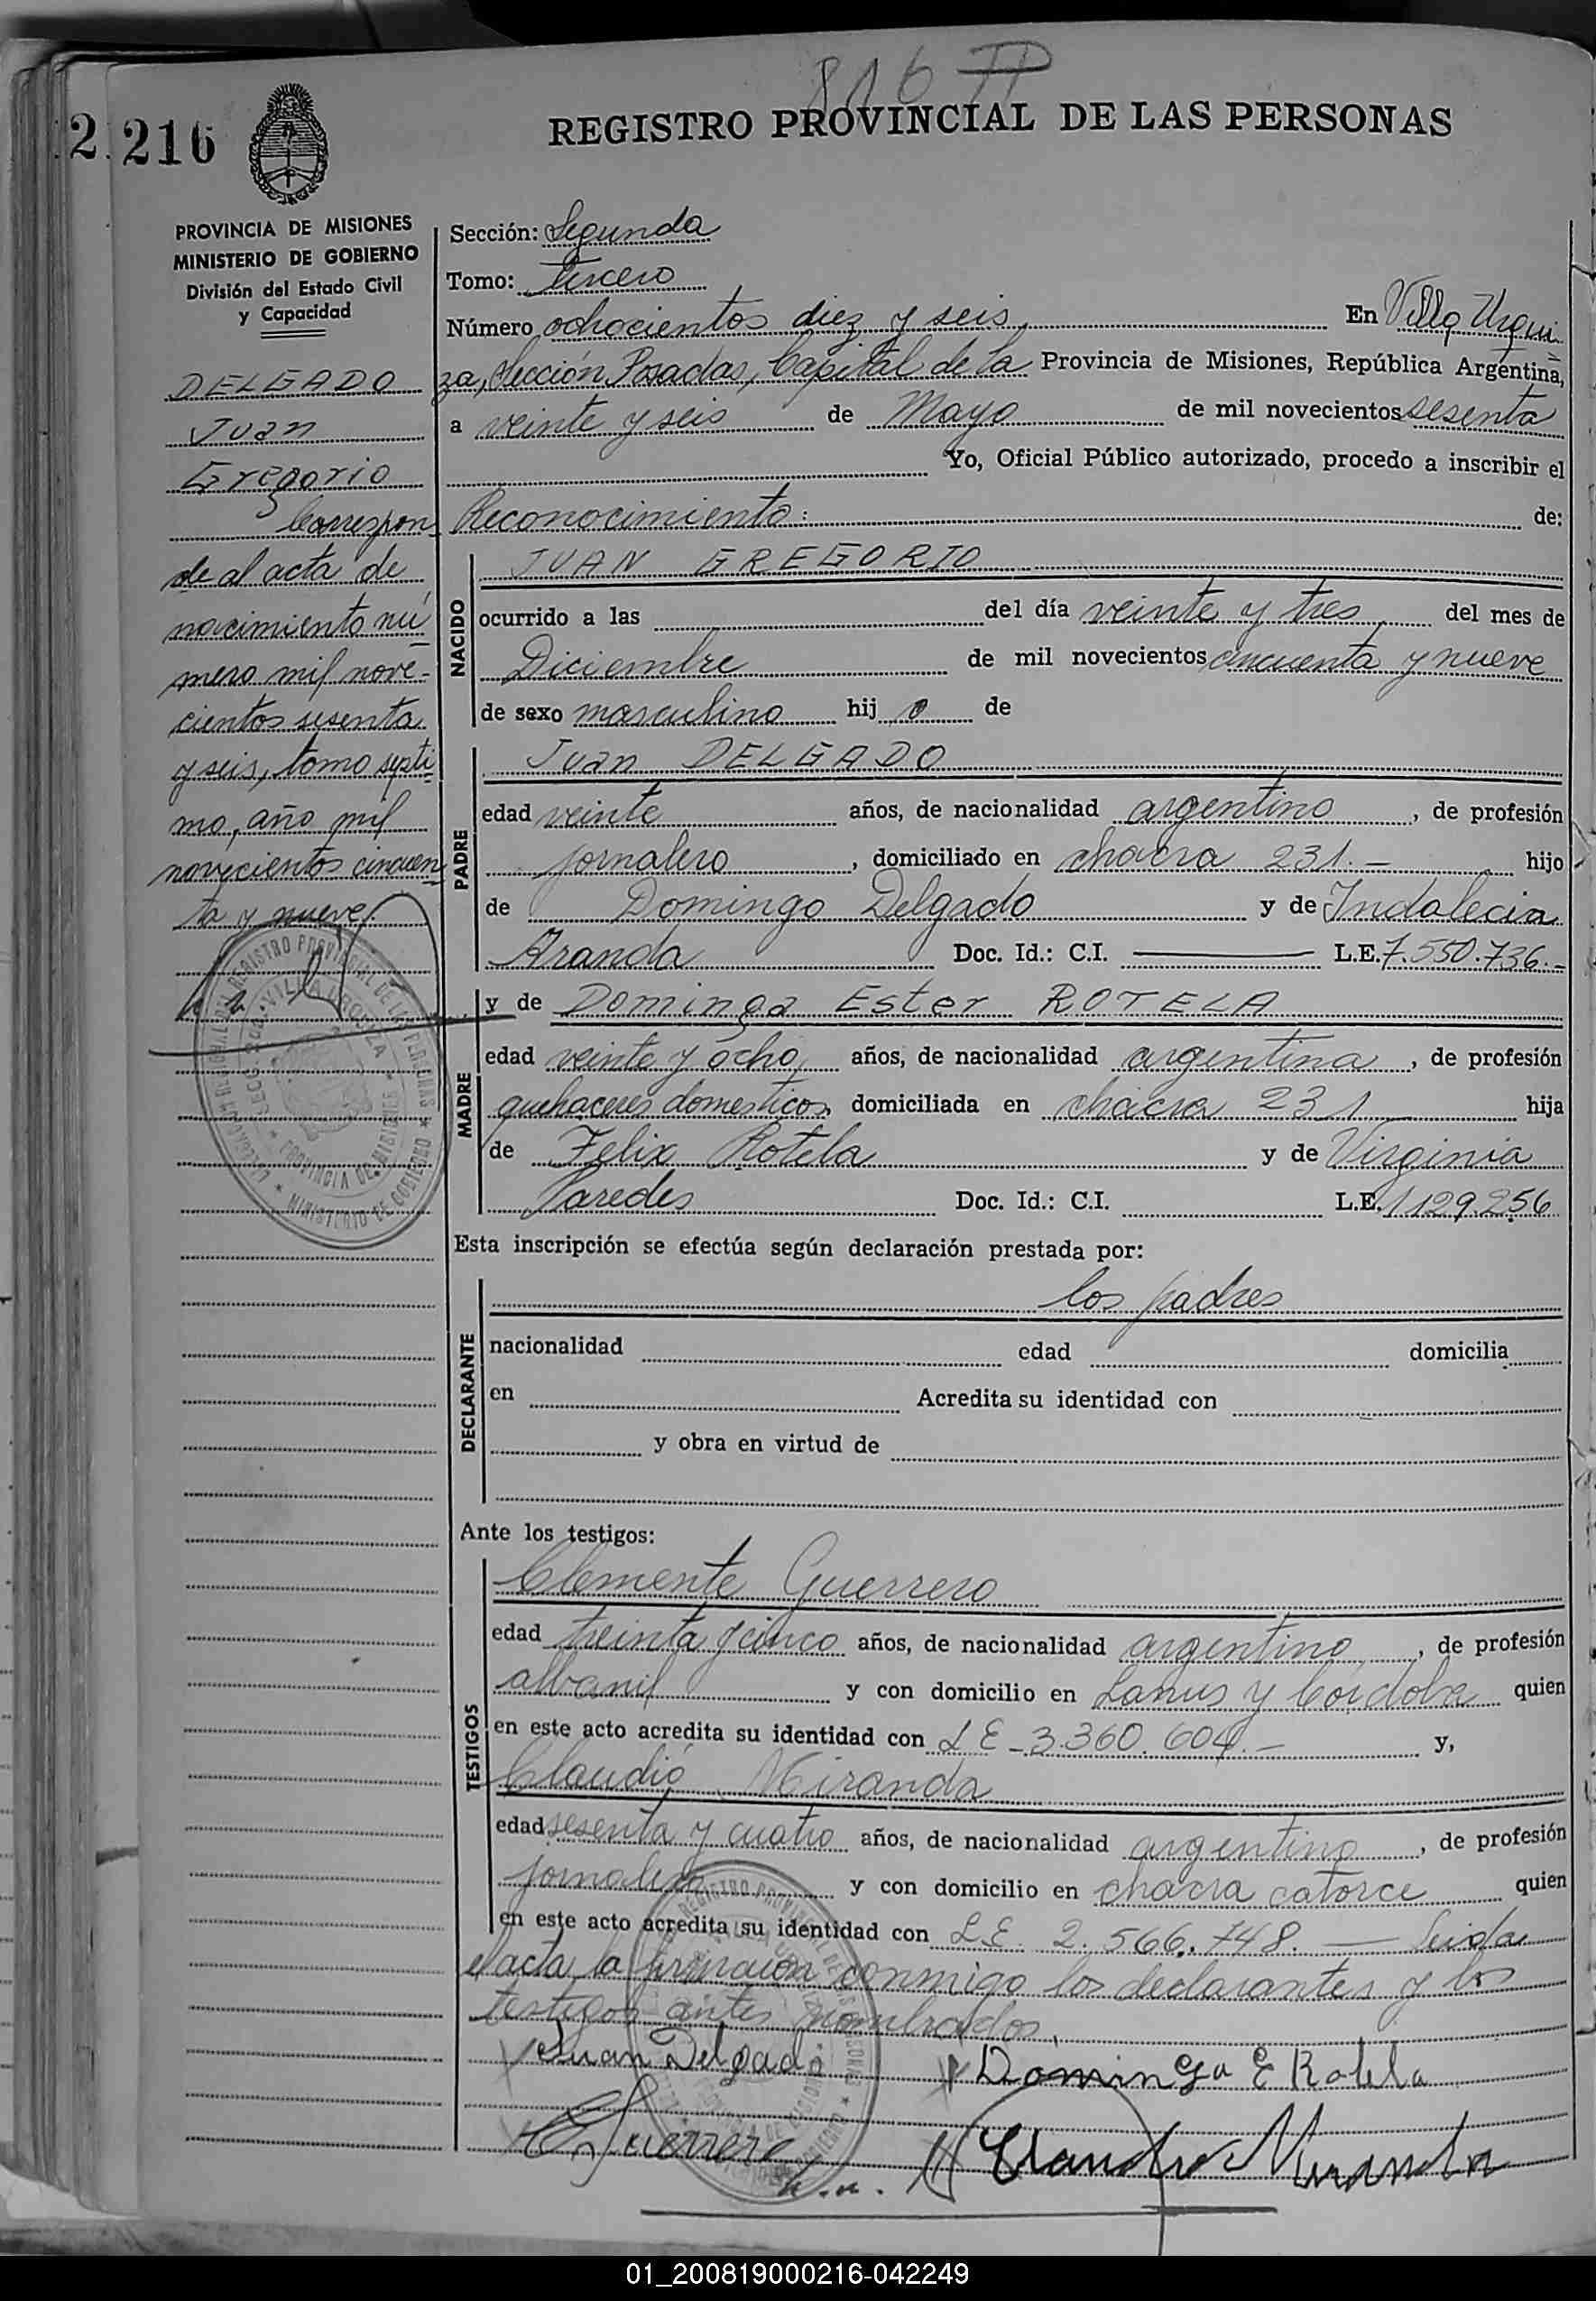 816 TT
2.216
REGISTRO PROVINCIAL DE LAS PERSONAS
PROVINCIA DE MISIONES
MINISTERIO DE GOBIERNO
División del Estado Civil
y Capacidad
DELGADO
Juan
Gregorio
Correspon
de al acta de
nacimiento nú
mero mil nove-
cientos sesenta
y seis, tomo septi
mo, año mil
novecientos cincuen
ta y nueve.
Sección: Segunda
Tomo: Tercero
Número ochocientos diez y seis En Villa Urqui
za, Sección Posadas, Capital de la Provincia de Misiones, República Argentina,
a veinte y seis de Mayo de mil novecientos sesenta
Yo, Oficial Público autorizado, procedo a inscribir el
Reconocimiento: de:
NACIDO
JUAN GREGORIO
ocurrido a las del día veinte y tres del mes de
Diciembre de mil novecientos cincuenta y nueve
de sexo masculino hij o de
PADRE
Juan DELGADO
edad veinte años, de nacionalidad argentino, de profesión
jornalero, domiciliado en chacra 231.- hijo
de Domingo Delgado y de Indalecia
Aranda Doc. Id.: C.I. L.E. 7.550.736.-
MADRE
y de Dominga Ester ROTELA
edad veinte y ocho años, de nacionalidad argentina, de profesión
quehaceres domesticos domiciliada en chacra 231 hija
de Felix Rotela y de Virginia
Paredes Doc. Id.: C.I. L.E. 1129.256
Esta inscripción se efectúa según declaración prestada por:
DECLARANTE
los padres
nacionalidad edad domicilia
en Acredita su identidad con
y obra en virtud de
Ante los testigos:
TESTIGOS
Clemente Guerrero
edad treinta y cinco años, de nacionalidad argentino, de profesión
albanil y con domicilio en Lanus y Cordoba quien
en este acto acredita su identidad con LE-3.360.604.- y,
Claudio Miranda
edad sesenta y cuatro años, de nacionalidad argentino, de profesión
jornalero y con domicilio en chacra catorce quien
en este acto acredita su identidad con L.E. 2.566.748. — Leida
el acta, la firmaron conmigo los declarantes y los
testigos antes nombrados.
Juan Delgado Dominga E Rotela
Guerrero Claudio Miranda
01_200819000216-042249